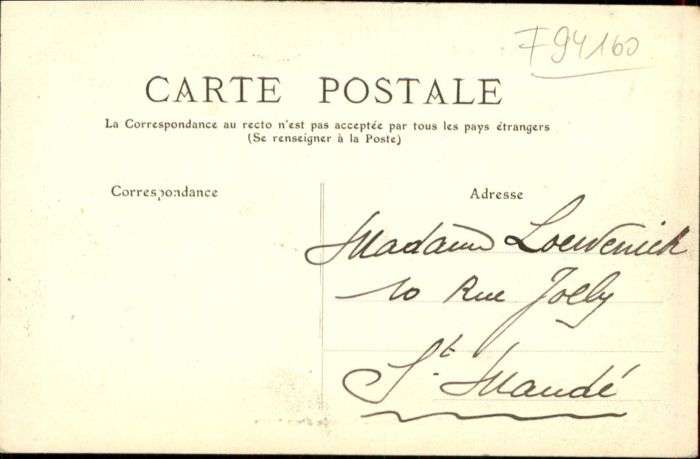 F94160
CARTE POSTALE
La Correspondance au recto n'est pas acceptée par tous les pays étrangers
(Se renseigner à la Poste)
Correspondance
Adresse
Madame Loewenick
10 Rue Jolly
St. Mandé